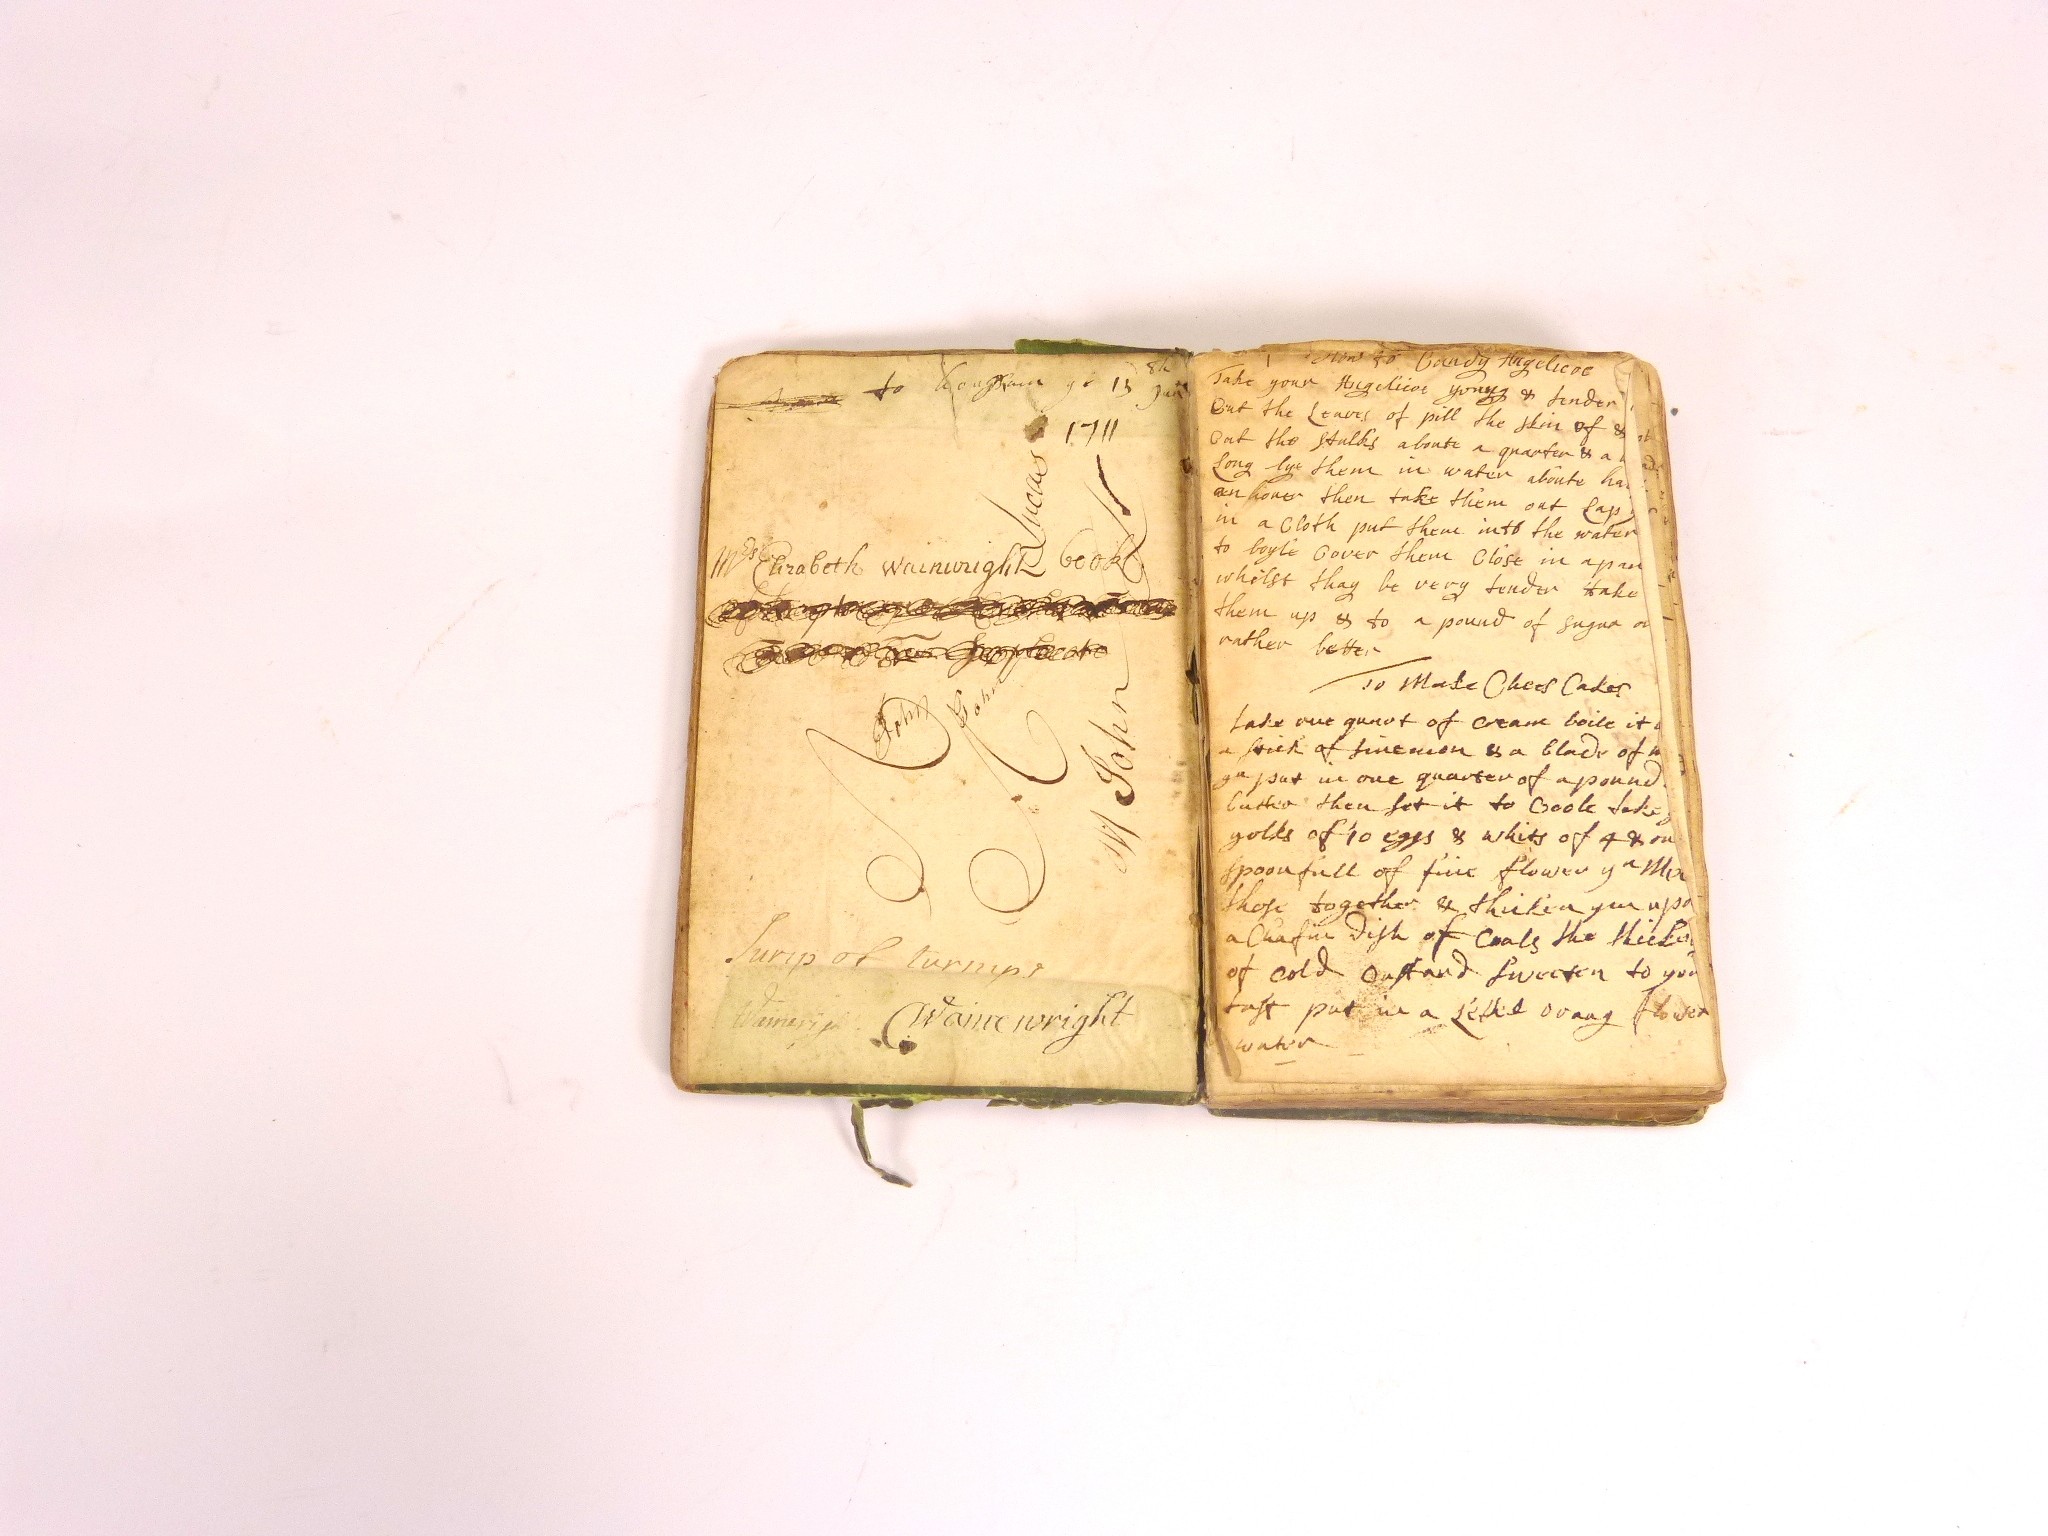 to ye 13th June
1711
Mrs Elizabeth Wainwright book
John
John
Mr John Lucas
Surip of turnips
Wainewright
How to Candy Angelicoe
Take your Angelicoe young & tender
Cut the Leaves of pill the skin of &
Cut the stalks aboute a quarter & a
Long lye them in water aboute
an hour then take them out Lap
in a Cloth put them into the water
to boyle Cover them Close in a pan
whilst thay be very tender take
them up & to a pound of sugar or
rather better
To Make Chees Cakes
take one quart of cream boile it
a stick of sinemon & a blade of
yn put in one quarter of a pound
butter then set it to Coole take
yolks of 10 eggs & whits of 4 & one
spoonfull of fine flower yn Mix
those together & thicken ym upo
a Chafin dish of Coals the thickn
of cold Custard sweeten to your
tast put in a Little orang flower
water